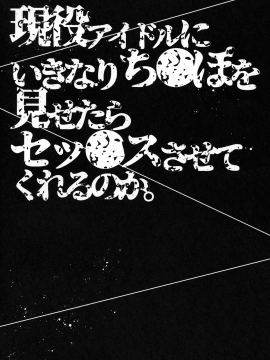 現役アイドルに
いきなりち●ぽを
見せたら
セッ●スさせて
くれるのか。